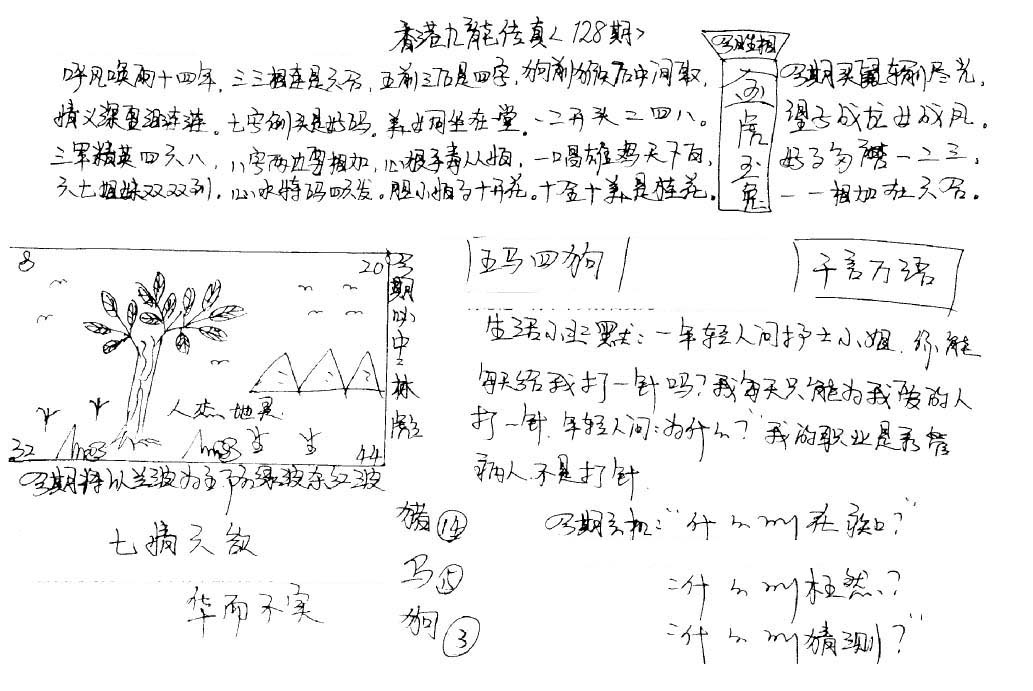 香港九龙传真<128期>
今期生相
金虎玉兔
呼风唤雨十四年，三三相连是六合，五前三后是四字，狗前猴后中间取，
情义深重泪连连。七字倒头是好码。美女同坐在一堂。一二开头二四八。
三军精英四六八，八字两边要相加，心狠手毒从烦，一唱雄鸡天下白，
六七姐妹双双到，心水特码四六发。胆小怕子十开花。十全十美是桂花。
今期买鼠转前尽光，
望子成龙女成凤。
好子勾腾一二三，
一一相加在六合。
8
20
人杰地灵
32
44
今期必中三林彪
五马四狗
千言万语
生活小幽默：一年轻人问护士小姐，你能
每天给我打一针吗？我每天只能为我爱的人
打一针，年轻人问：为什么？我的职业是看管
病人不是打针
今期将以兰波为主防绿波杂红波
七情六欲
华而不实
猪 14
马 15
狗 3
今期玄机："什么叫在疾口？"
"什么叫枉然？"
"什么叫猜测？"